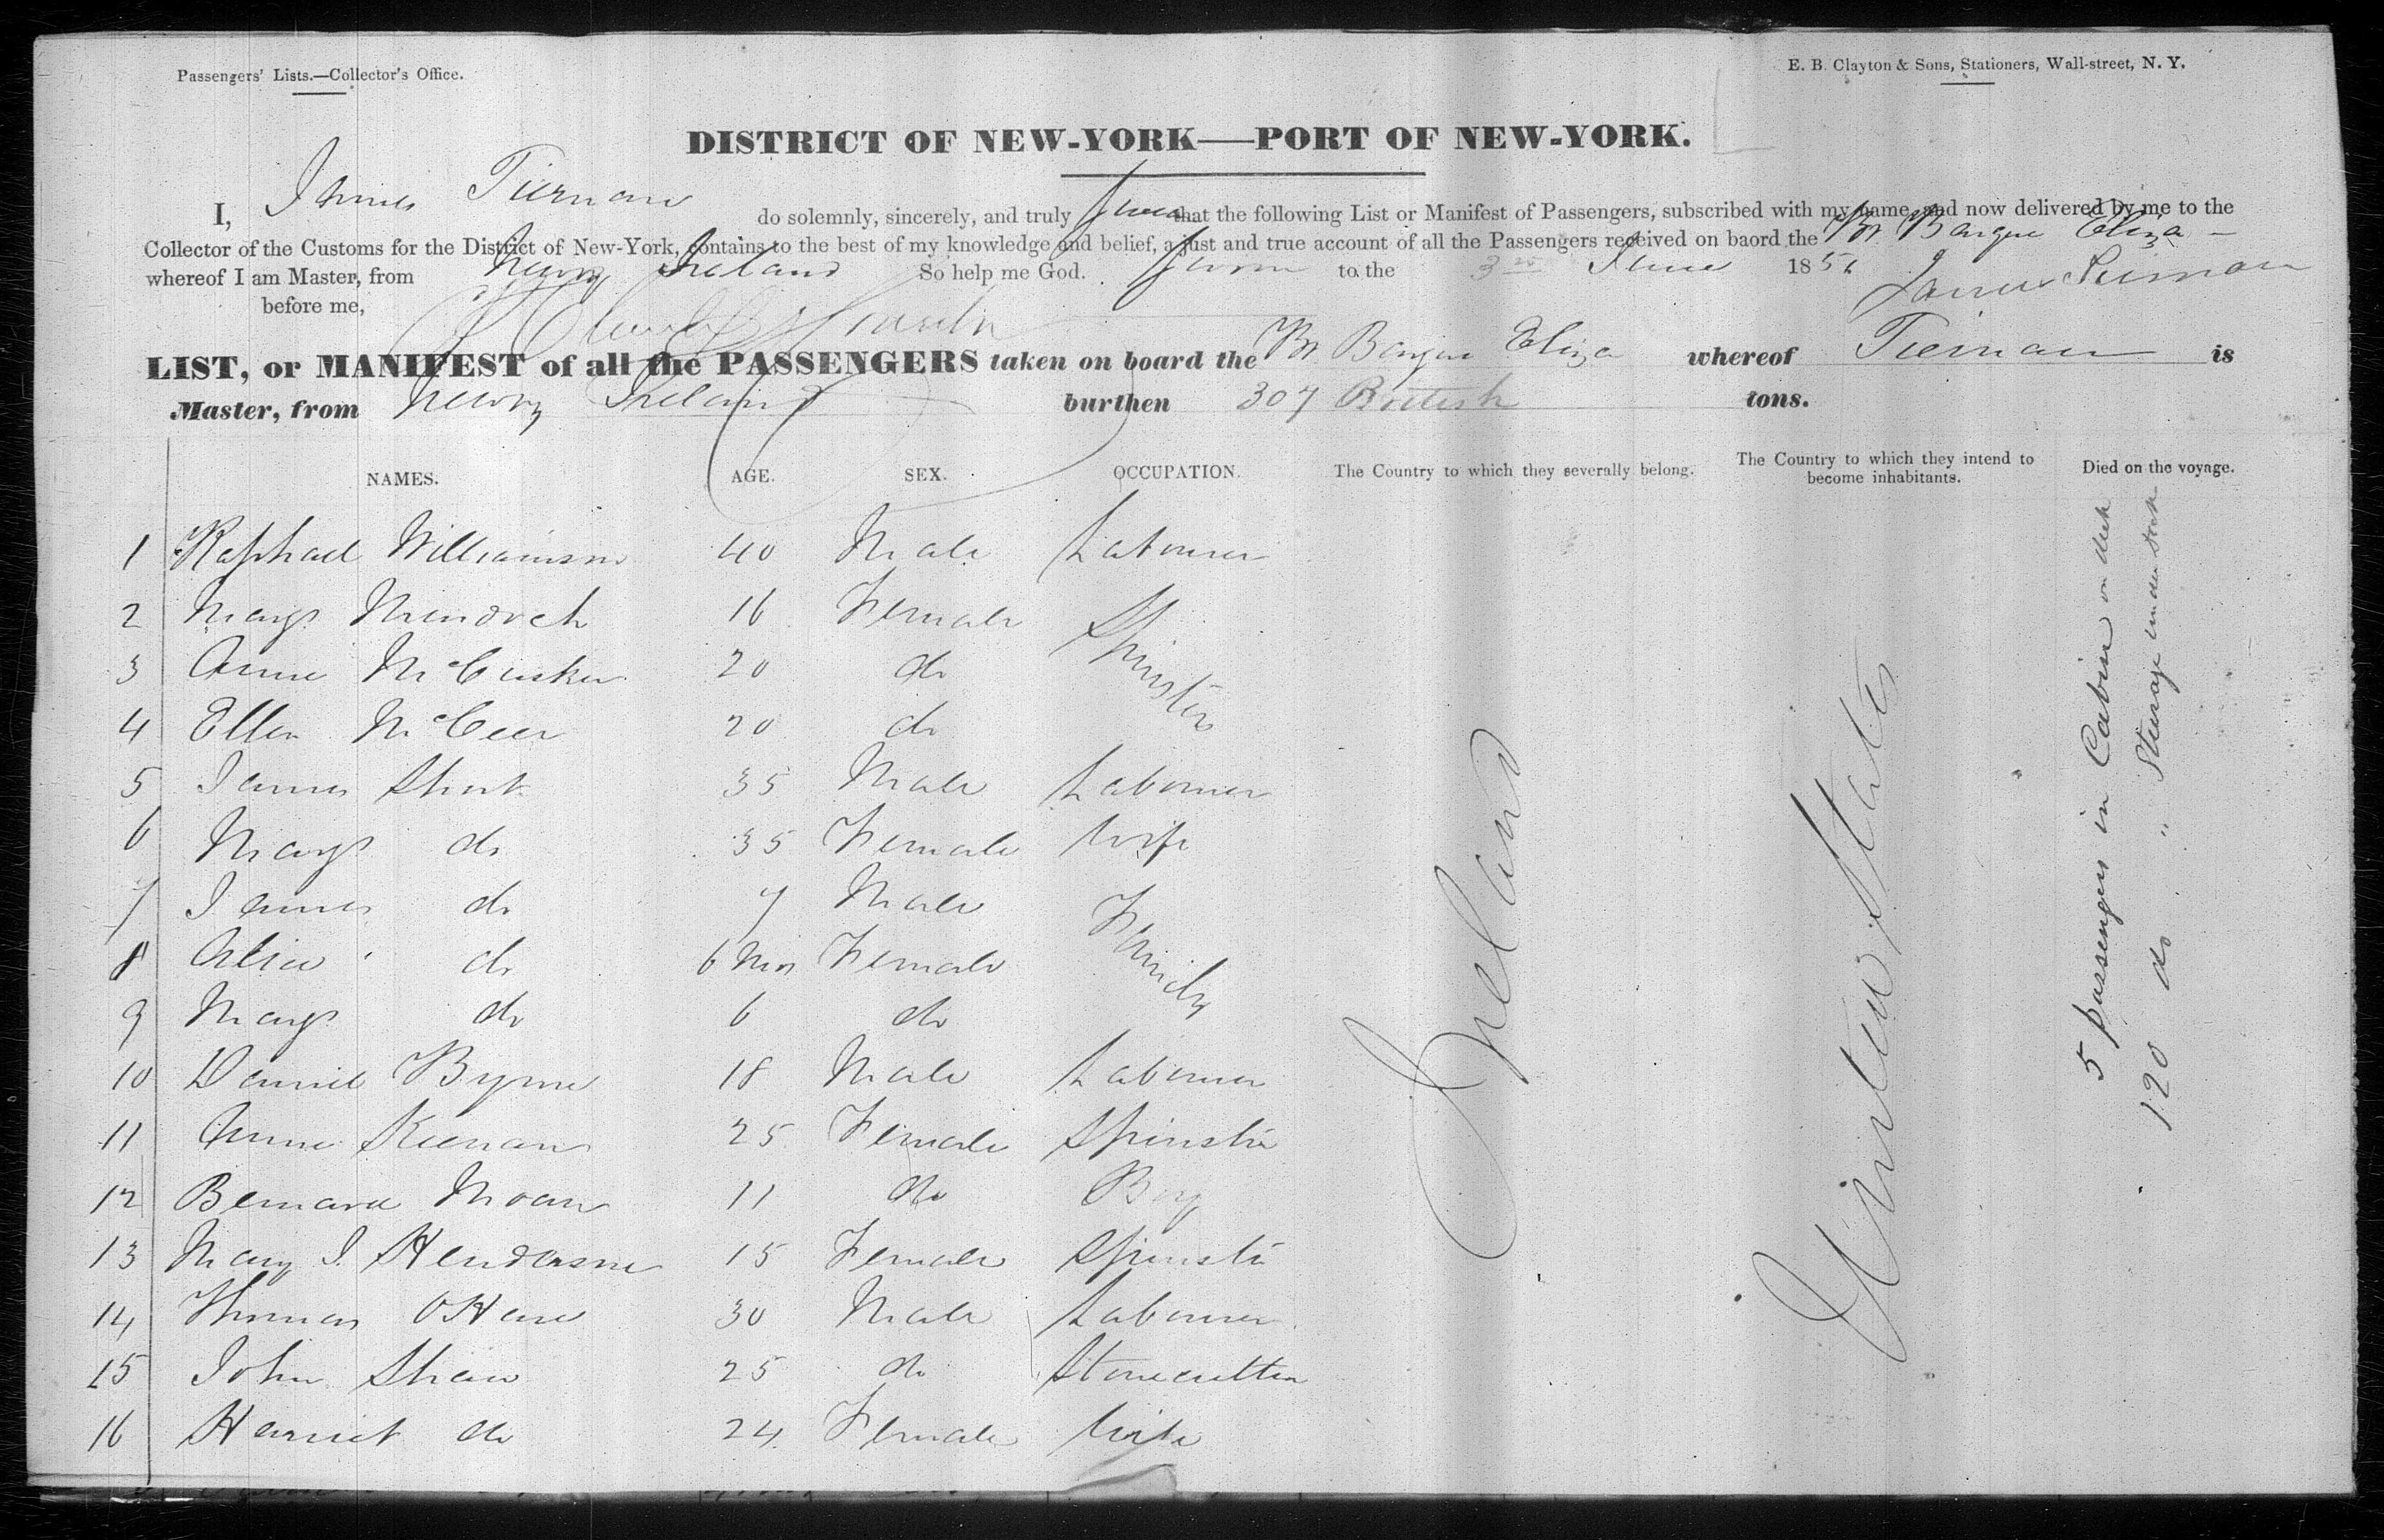 Passengers' Lists.—Collector's Office.
E. B. Clayton & Sons, Stationers, Wall-street, N. Y.
DISTRICT OF NEW-YORK—PORT OF NEW-YORK.
I, James Tiernan do solemnly, sincerely, and truly swear that the following List or Manifest of Passengers, subscribed with my name, and now delivered by me to the
Collector of the Customs for the District of New-York, contains to the best of my knowledge and belief, a just and true account of all the Passengers received on baord the Br. Barque Eliza
whereof I am Master, from Newry Ireland So help me God. Sworn to the 3 June 1856 James Tiernan
before me,
LIST, or MANIFEST of all the PASSENGERS taken on board the Br Barque Eliza whereof Tiernan is
Master, from Newry Ireland burthen 307 British tons.
NAMES. AGE. SEX. OCCUPATION. The Country to which they severally belong. The Country to which they intend to become inhabitants. Died on the voyage.
1 Raphael Williamson 40 Male Labourer
2 Mary 16 Female Spinsters
3 Anne McCusker 20 do
4 Ellen McGeer 20 do
5 James Short 35 Male Labourer
6 Mary do 35 Female Wife
7 James do 7 Male Family
8 Alice do 6 Mos Female
9 Mary do 6 do
10 Daniel Byrne 18 Male Labourer
11 Anne Keenan 25 Female Spinster
12 Bernard Moan 11 do Boy
13 Mary J. Henderson 15 Female Spinster
14 Thomas O'Hare 30 Male Labourer
15 John Shaw 25 do Stonecutter
16 Harriet do 24 Female Wife
Ireland
United States
5 passengers in Cabin on deck
120 do " Steerage under deck